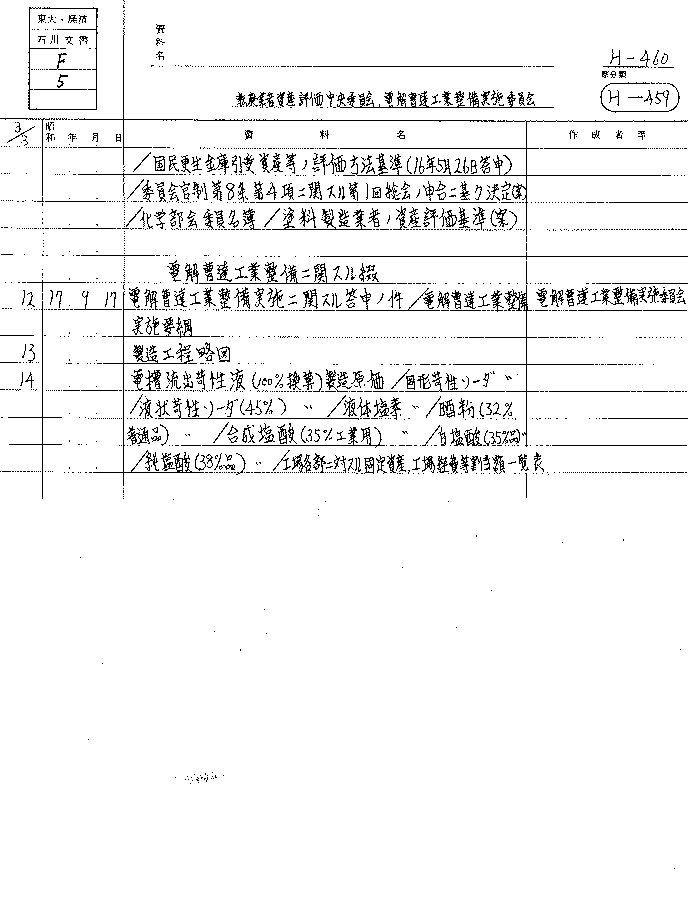 東大・経済
石川文書
F
5
資料名
H-460
原分類
H-459
転廃業者資産評価中央委員会、電解曹達工業整備実施委員会
3/3 昭和 年 月 日 資料名 作成者等
/国民更生金庫引受資産等ノ評価方法基準(16年5月26日答申)
/委員会官制第8条第4項ニ関スル第1回総会ノ申合ニ基ク決定(案)
/化学部会委員名簿 /塗料製造業者ノ資産評価基準(案)
電解曹達工業整備ニ関スル綴
12 17 9 17 電解曹達工業整備実施ニ関スル答申ノ件/電解曹達工業整備 電解曹達工業整備実施委員会
実施要綱
13 製造工程略図
14 電槽流出苛性液(100%換算)製造原価 /固形苛性ソーダ 〃
/液状苛性ソーダ(45%) 〃 /液体塩素 〃 /晒粉(32%
普通品) 〃 /合成塩酸(35%工業用) 〃 /白塩酸(35%品)〃
/純塩酸(38%品) 〃 /工場各部ニ対スル固定資産、工場経費等割当額一覧表